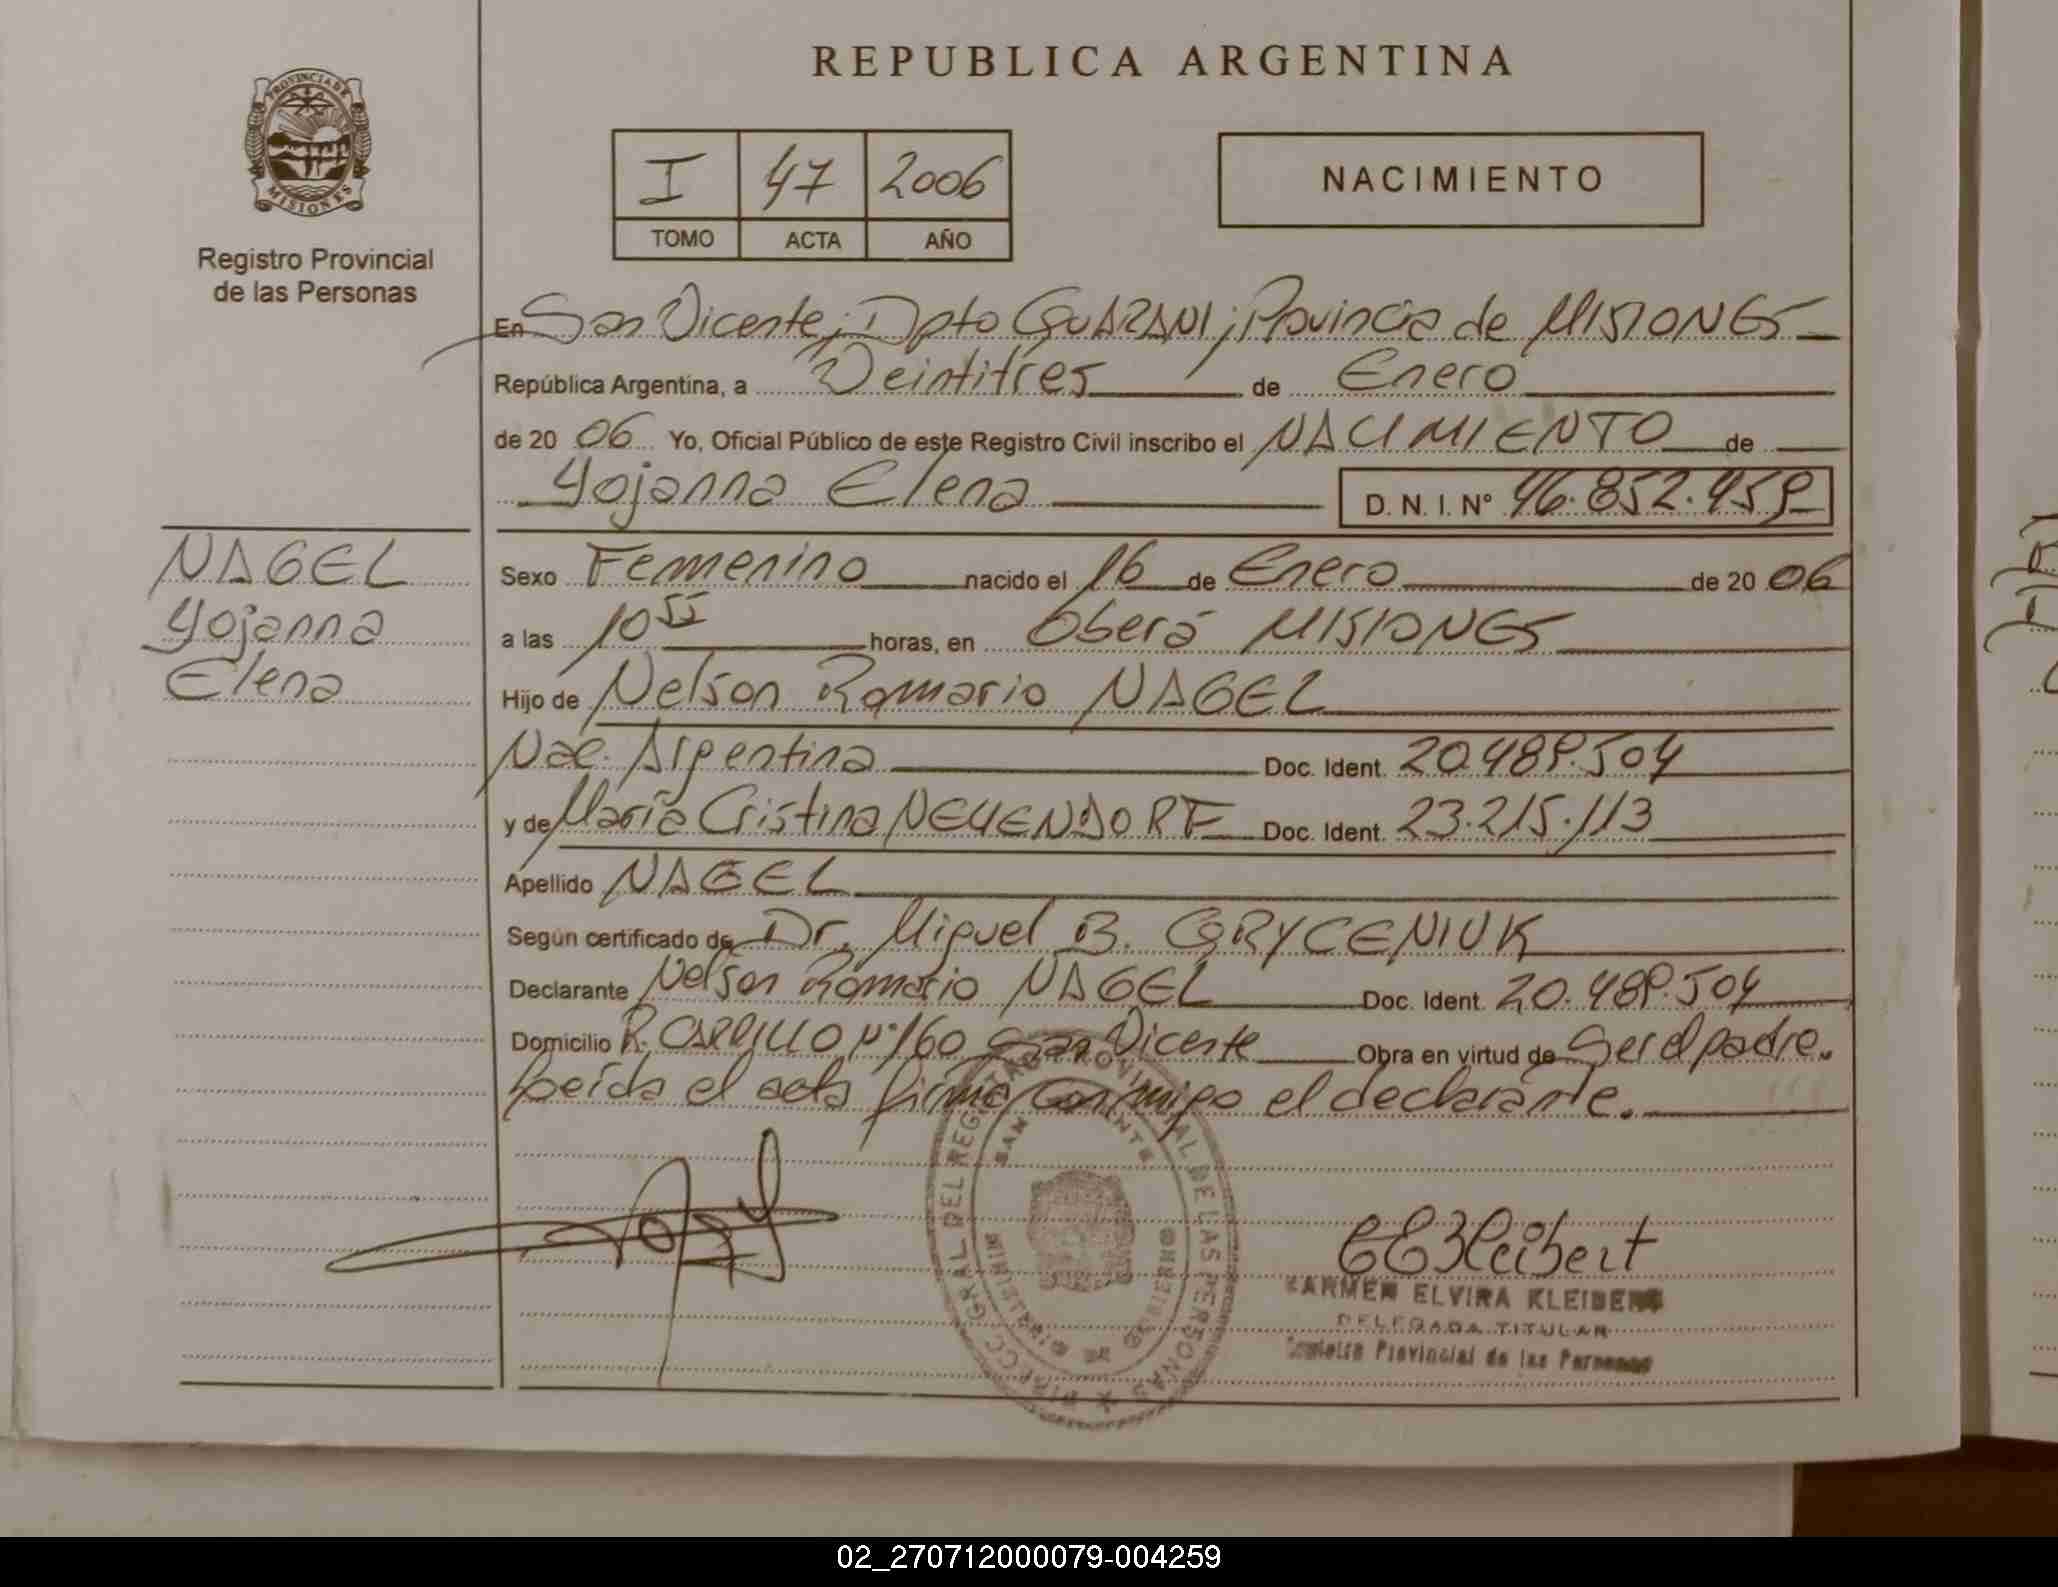 REPUBLICA ARGENTINA
PROVINCIA DE
MISIONES
Registro Provincial
de las Personas
I 47 2006
TOMO ACTA AÑO
NACIMIENTO
En San Vicente; Dpto GUARANI; Provincia de MISIONES
República Argentina, a Veintitres de Enero
de 20 06 Yo, Oficial Público de este Registro Civil inscribo el NACIMIENTO de
Yojanna Elena D. N. I. Nº 46.852.459
NAGEL
Yojanna
Elena
Sexo Femenino nacido el 16 de Enero de 20 06
a las 10 55 horas, en Oberá MISIONES
Hijo de Nelson Romario NAGEL
Nac. Argentina Doc. Ident. 20.489.504
y de María Cristina NEYENDORF Doc. Ident. 23.215.113
Apellido NAGEL
Según certificado de Dr. Miguel B. GRYCENIUK
Declarante Nelson Romario NAGEL Doc. Ident. 20.489.504
Domicilio R. CARRILLO Nº 160 San Vicente Obra en virtud de Ser el padre.
Leída el acta firma conmigo el declarante.
CEKleibert
CARMEN ELVIRA KLEIBERT
DELEGADA TITULAR
Registro Provincial de las Personas
02_270712000079-004259